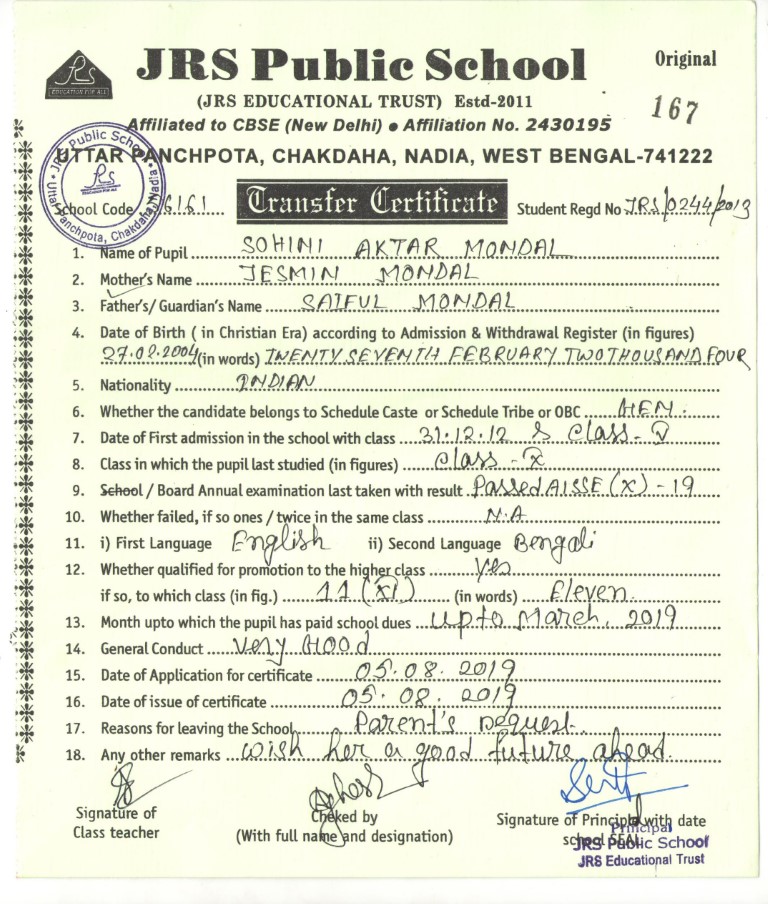 JRS Public School
Original
JRS
EDUCATION FOR ALL
(JRS EDUCATIONAL TRUST) Estd-2011
167
Affiliated to CBSE (New Delhi) ● Affiliation No. 2430195
UTTAR PANCHPOTA, CHAKDAHA, NADIA, WEST BENGAL-741222
JRS Public School
Uttar Panchpota, Chakdaha, Nadia
School Code 6161 Transfer Certificate Student Regd No JRS/0244/2013
1. Name of Pupil SOHINI AKTAR MONDAL
2. Mother's Name JESMIN MONDAL
3. Father's/ Guardian's Name SAIFUL MONDAL
4. Date of Birth ( in Christian Era) according to Admission & Withdrawal Register (in figures)
27.02.2004 (in words) TWENTY SEVENTH FEBRUARY TWO THOUSAND FOUR
5. Nationality INDIAN
6. Whether the candidate belongs to Schedule Caste or Schedule Tribe or OBC GEN.
7. Date of First admission in the school with class 31.12.12 & Class - V
8. Class in which the pupil last studied (in figures) Class - X
9. School / Board Annual examination last taken with result Passed AISSE (X) - 19
10. Whether failed, if so ones / twice in the same class N.A
11. i) First Language English ii) Second Language Bengali
12. Whether qualified for promotion to the higher class yes
if so, to which class (in fig.) 11 (XI) (in words) Eleven.
13. Month upto which the pupil has paid school dues upto March, 2019
14. General Conduct Very Good
15. Date of Application for certificate 05.08.2019
16. Date of issue of certificate 05.08.2019
17. Reasons for leaving the School Parent's Request.
18. Any other remarks wish her a good future ahead.
Signature of
Class teacher
Cheked by
(With full name and designation)
Signature of Principal with date
school SEAL
Principal
JRS Public School
JRS Educational Trust